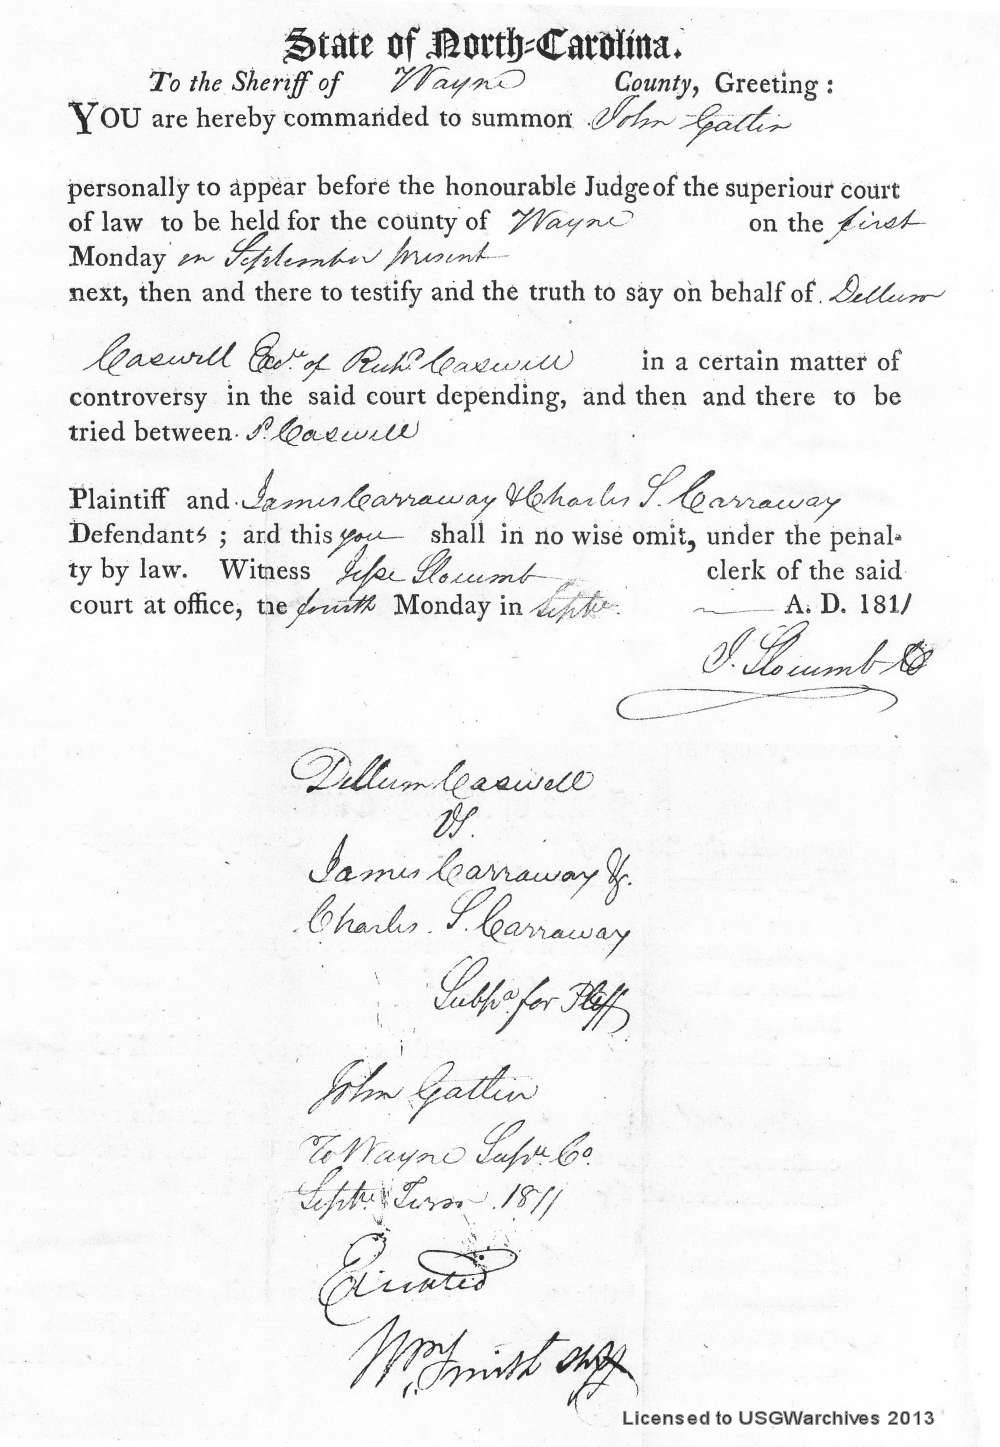 State of North-Carolina.
To the Sheriff of Wayne County, Greeting:
YOU are hereby commanded to summon John Gatlin
personally to appear before the honourable Judge of the superiour court
of law to be held for the county of Wayne on the first
Monday in September present
next, then and there to testify and the truth to say on behalf of Dellum
Caswell Exr. of Richd Caswell in a certain matter of
controversy in the said court depending, and then and there to be
tried between Caswell
Plaintiff and James Carraway & Charles S. Carraway
Defendants; and this you shall in no wise omit, under the penal-
ty by law. Witness Jesse Slocumb clerk of the said
court at office, the fourth Monday in Septr. A. D. 1811
J. Slocumb
Dellum Caswell
VS.
James Carraway &
Charles S. Carraway
Subpa. for Pltff
John Gatlin
To Wayne Supr. Co.
Septr. Term 1811
Executed
Wm Smith Shff
Licensed to USGWarchives 2013